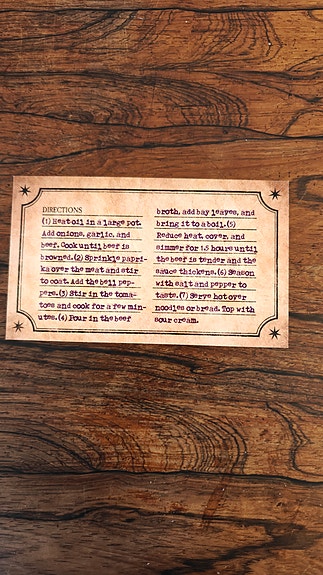 DIRECTIONS
(1) Heat oil in a large pot.
Add onions, garlic, and
beef. Cook until beef is
browned. (2) Sprinkle papri-
ka over the meat and stir
to coat. Add the bell pep-
pers. (3) Stir in the toma-
toes and cook for a few min-
utes. (4) Pour in the beef
broth, add bay leaves, and
bring it to a boil. (5)
Reduce heat, cover, and
simmer for 1.5 hours until
the beef is tender and the
sauce thickens. (6) Season
with salt and pepper to
taste. (7) Serve hot over
noodles or bread. Top with
sour cream.